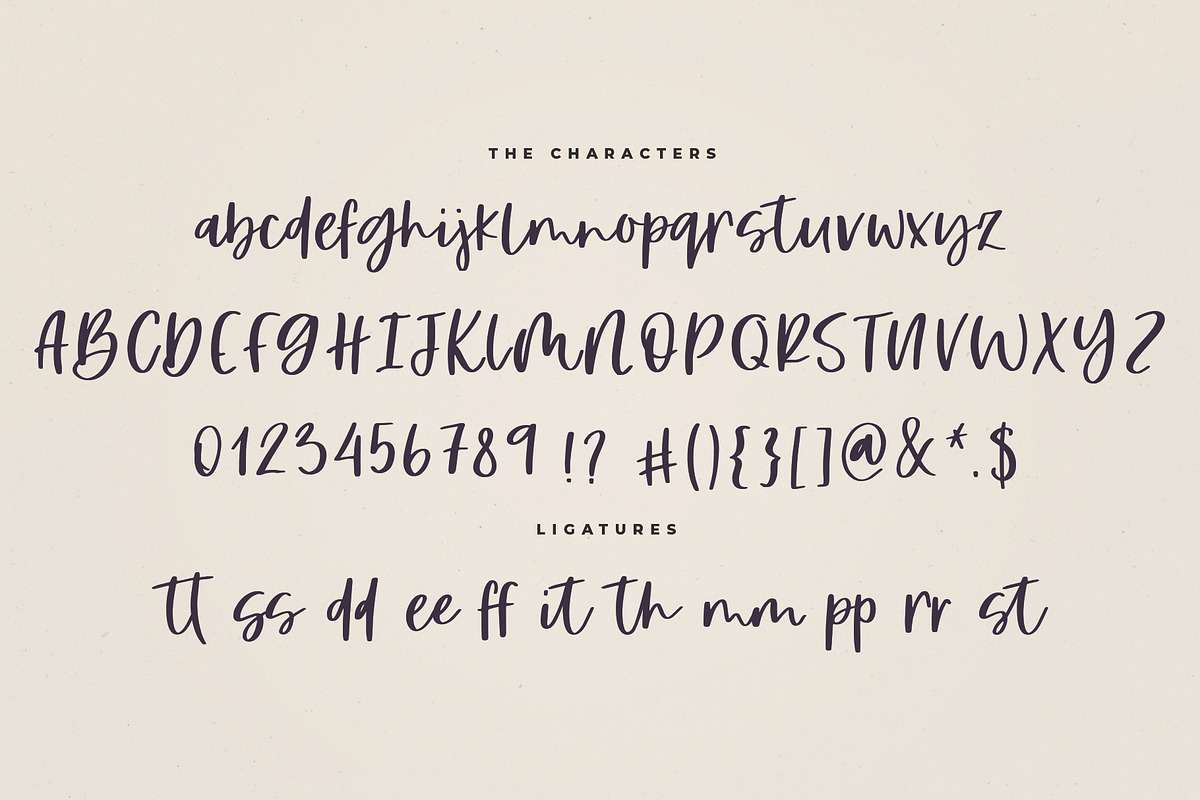 THE CHARACTERS
abcdefghijklmnopqrstuvwxyz
ABCDEFGHIJKLMNOPQRSTUVWXYZ
0123456789 !? #(){}[]@&*.$
LIGATURES
tt ss dd ee ff it th mm pp rr st